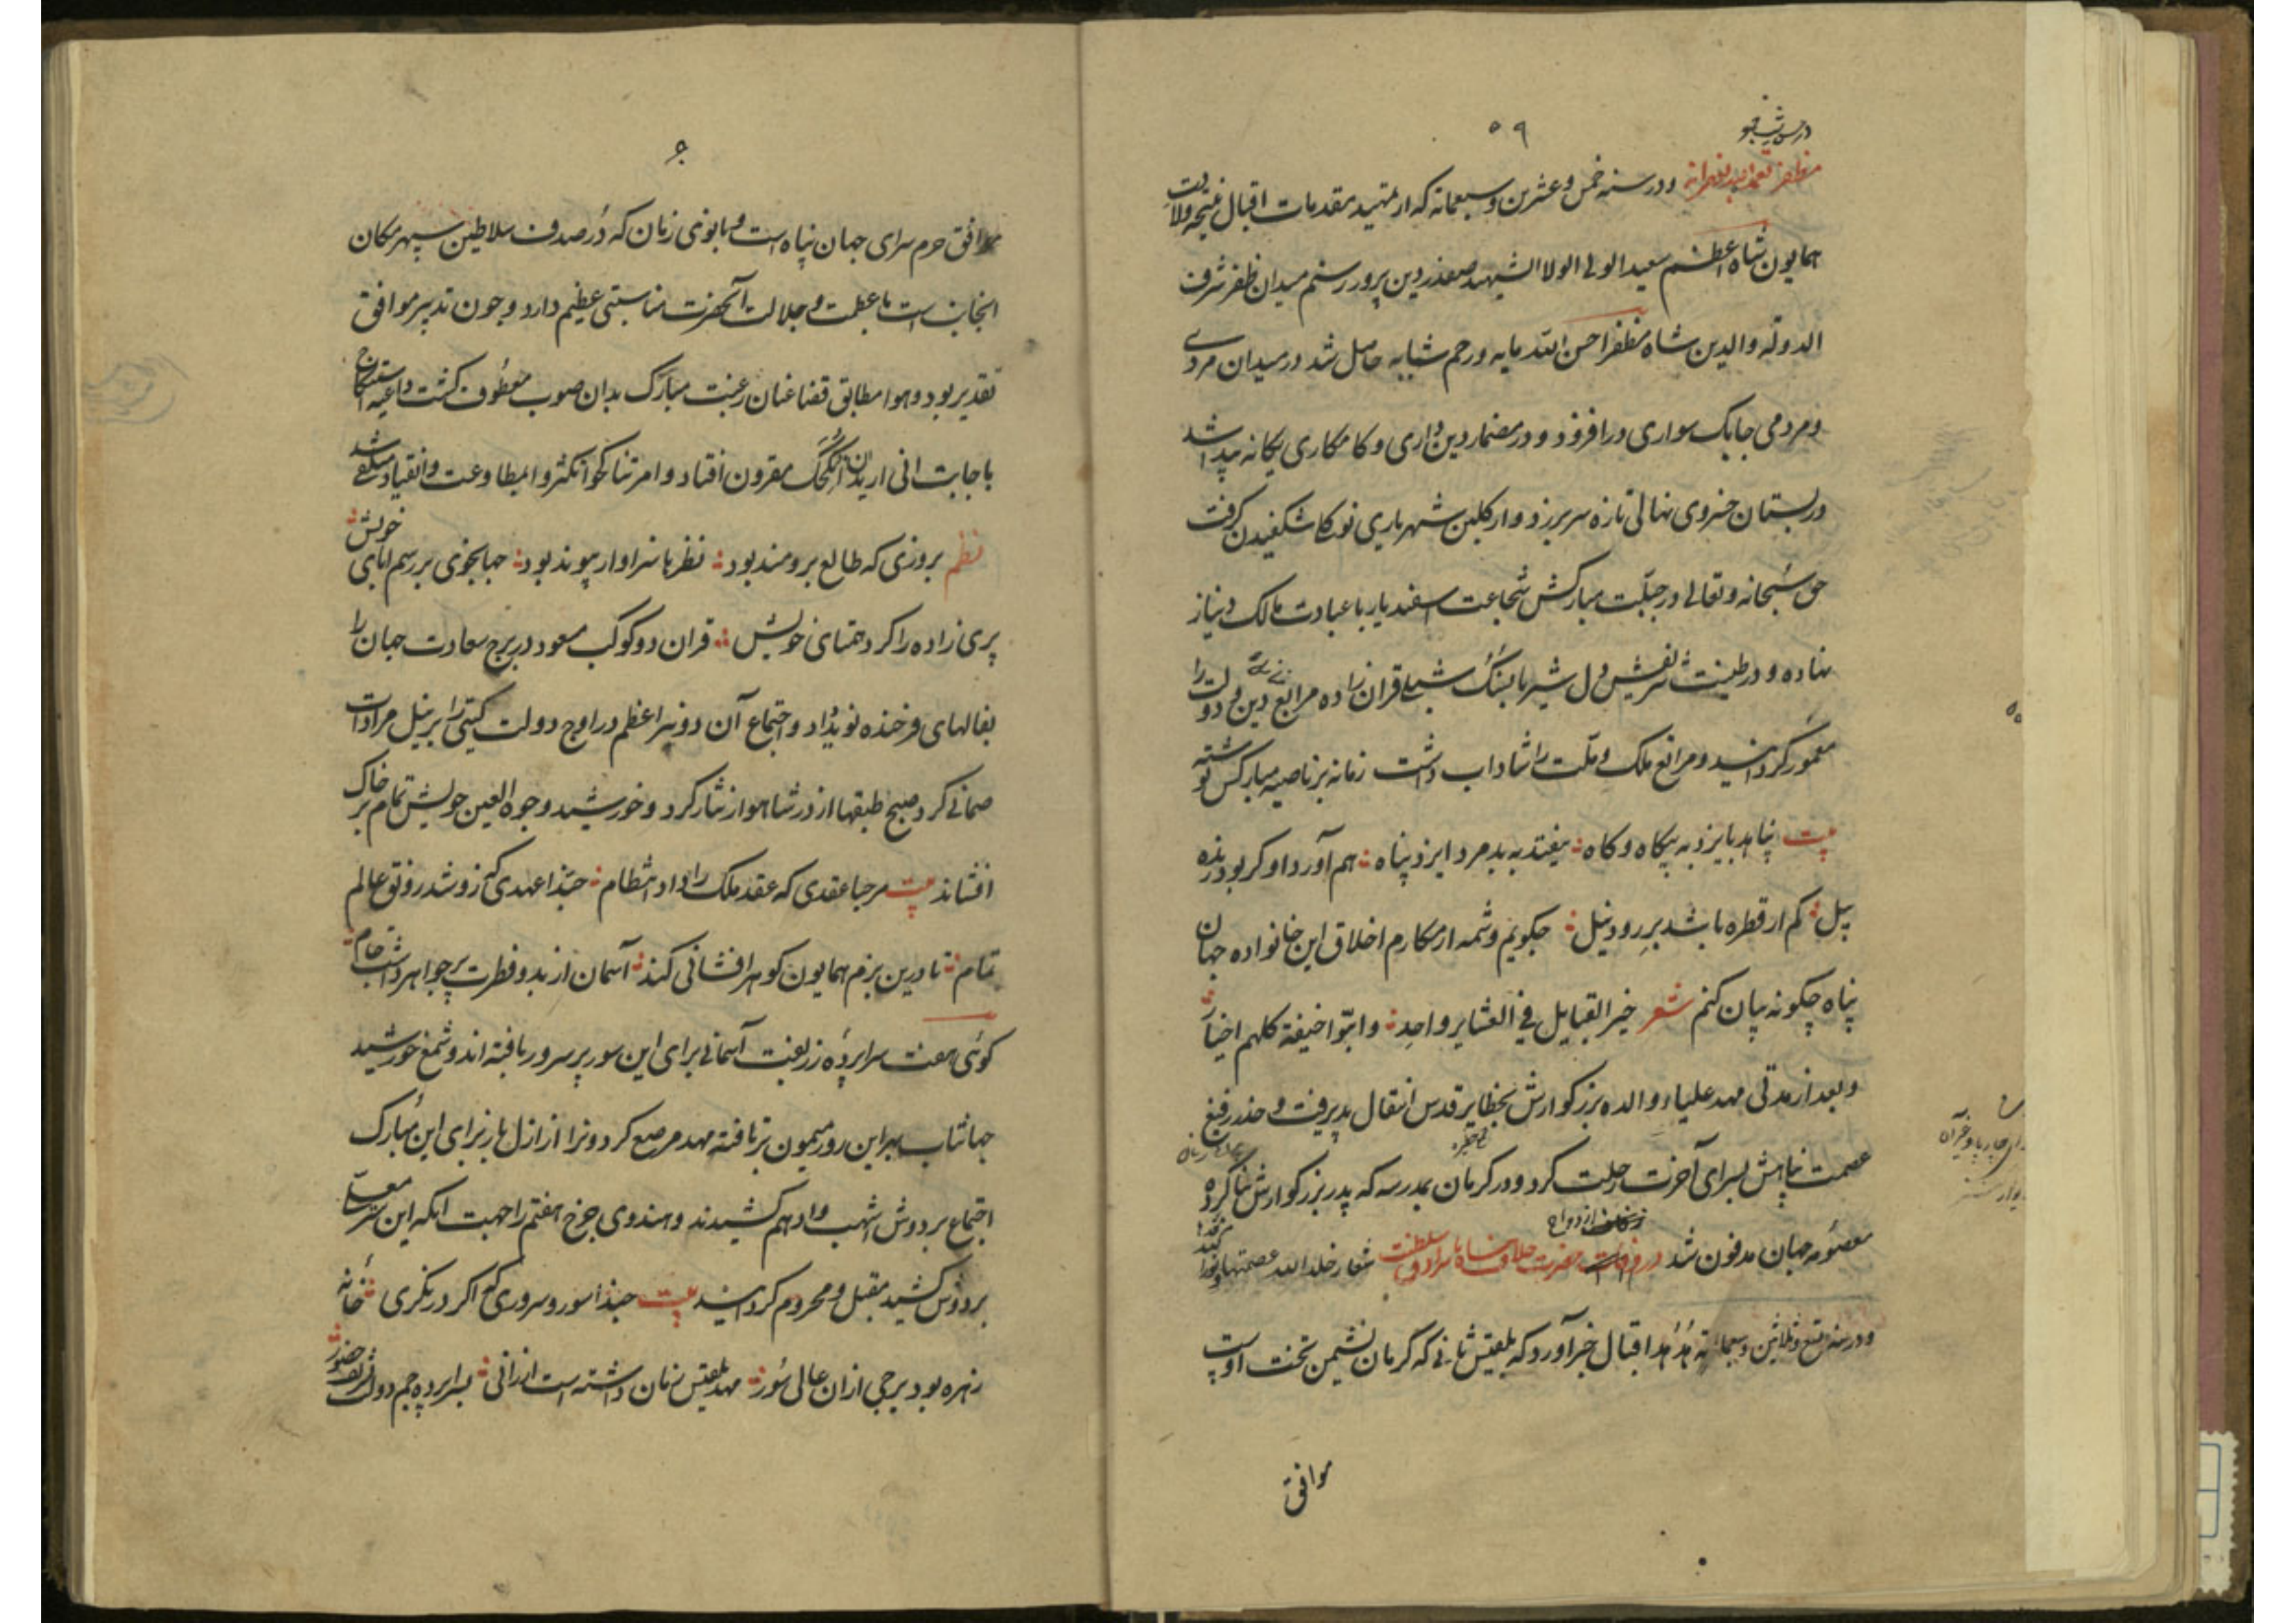 ۵۹
مظفر تغمده الله بغفرانه و در سنه خمس و عشرین و سبعمائه که از تمهید مقدمات اقبال نتیجه ولادت
همایون شاه اعظم سعید الولی الولا الشهید صفدر دین پرور رستم میدان ظفر شرف
الدوله والدین شاه مظفر احسن الله مآبه و رحم شبابه حاصل شد در میدان مردی
و مردمی چابک سواری درافزود و در مضمار دین داری و کامکاری یکانه پیدا شد
در بستان خسروی نهالی تازه سر برزد و از کلبن شهریاری نو کل شکفیدن کرفت
حق سبحانه و تعالی در جبلّت مبارکش شجاعت اسفندیار با عبادت مالک دینار
نهاده و در طینت شریفش دل شیر با سنک شبلی قران داده مرابع دین و دولت را
معمور کردانید و مراتع ملک و ملّت را شاداب داشت زمانه بر ناصیه مبارکش نوشته
بیت پناهد بایزد به بیکاه و کاه نیفتد به بد مرد ایزد پناه هم آورد او کر بود زنده
پیل کم از قطره باشد بر رود نیل چکویم و شمه از مکارم اخلاق این خانواده جهان
پناه چکونه بیان کنم شعر خیر القبایل فی العشایر واحد وابنوا حنیفة کلهم اخیار
و بعد از مدتی مهد علیاء والده بزرکوارش بخطایر قدس انتقال پذیرفت و خدر رفیع
عصمت پناهش بسرای آخرت رحلت کرد و در کرمان بمدرسه که پدر بزرکوارش بنا کرده
معصومه جهان مدفون شد در حضرت شاه سلطنت شعار خلد الله عصمتها
و در سنه تسع و ثلاثین و سبعمائه هدهد اقبال خبر آورد که بلقیس ثانی که کرمان نشیمن تخت اوست
موافق
موافق حرم سرای جهان پناه است و بانوی زمان که دُر صدف سلاطین سپهر مکان
انجانب است با عظمت و جلالت آنحضرت مناسبتی عظیم دارد و چون تدبیر موافق
تقدیر بود و هوا مطابق قضا عنان رغبت مبارک بدان صوب معطوف کشت و داعیه استنکاح
باجابت انی ارید ان انکحک مقرون افتاد و امر تناکحوا تکثروا بمطاوعت و انقیاد متلقی شد
نظم بروزی که طالع برومند بود نظرها سزاوار پیوند بود جهانجوی بر رسم ابای خویش
پری زاده را کرد همتای خویش قران دو کوکب مسعود در برج سعادت جهان را
بفالهای فرخنده نوید داد و اجتماع آن دو نیر اعظم در اوج دولت کیتی را بر نیل مرادات
ضمانی کرد صبح طبقها از در شاهوار نثار کرد و خورشید وجوه العین خویش تمام بر خاک
افشاند بیت مرحبا عقدی که عقد ملک را داد انتظام حبّذا عهدی کزو شد رونق عالم
تمام تا درین بزم همایون کوهر افشانی کند آسمان از بدو فطرت پر جواهر داشت جام
کوئی هفت سرابرده زربفت آسمانی برای این سور پر سرور بافته اند و شمع خورشید
جهانتاب بهر این روز میمون بر تافته مهد مرصع کردون را از ازل باز برای این مبارک
اجتماع بر دوش اشهب و ادهم کشیدند و هندوی چرخ هفتم را جهت انکه این معلّی
بر دوش کشید مقبل و محروم کردانید بیت حبذا سور و سروری که اکر در نکری خانه
زهره بود برجی ازان عالی سُور مهد بلقیس زمان داشته است ارزانی بسرابرده جم دولت تشریف حضور